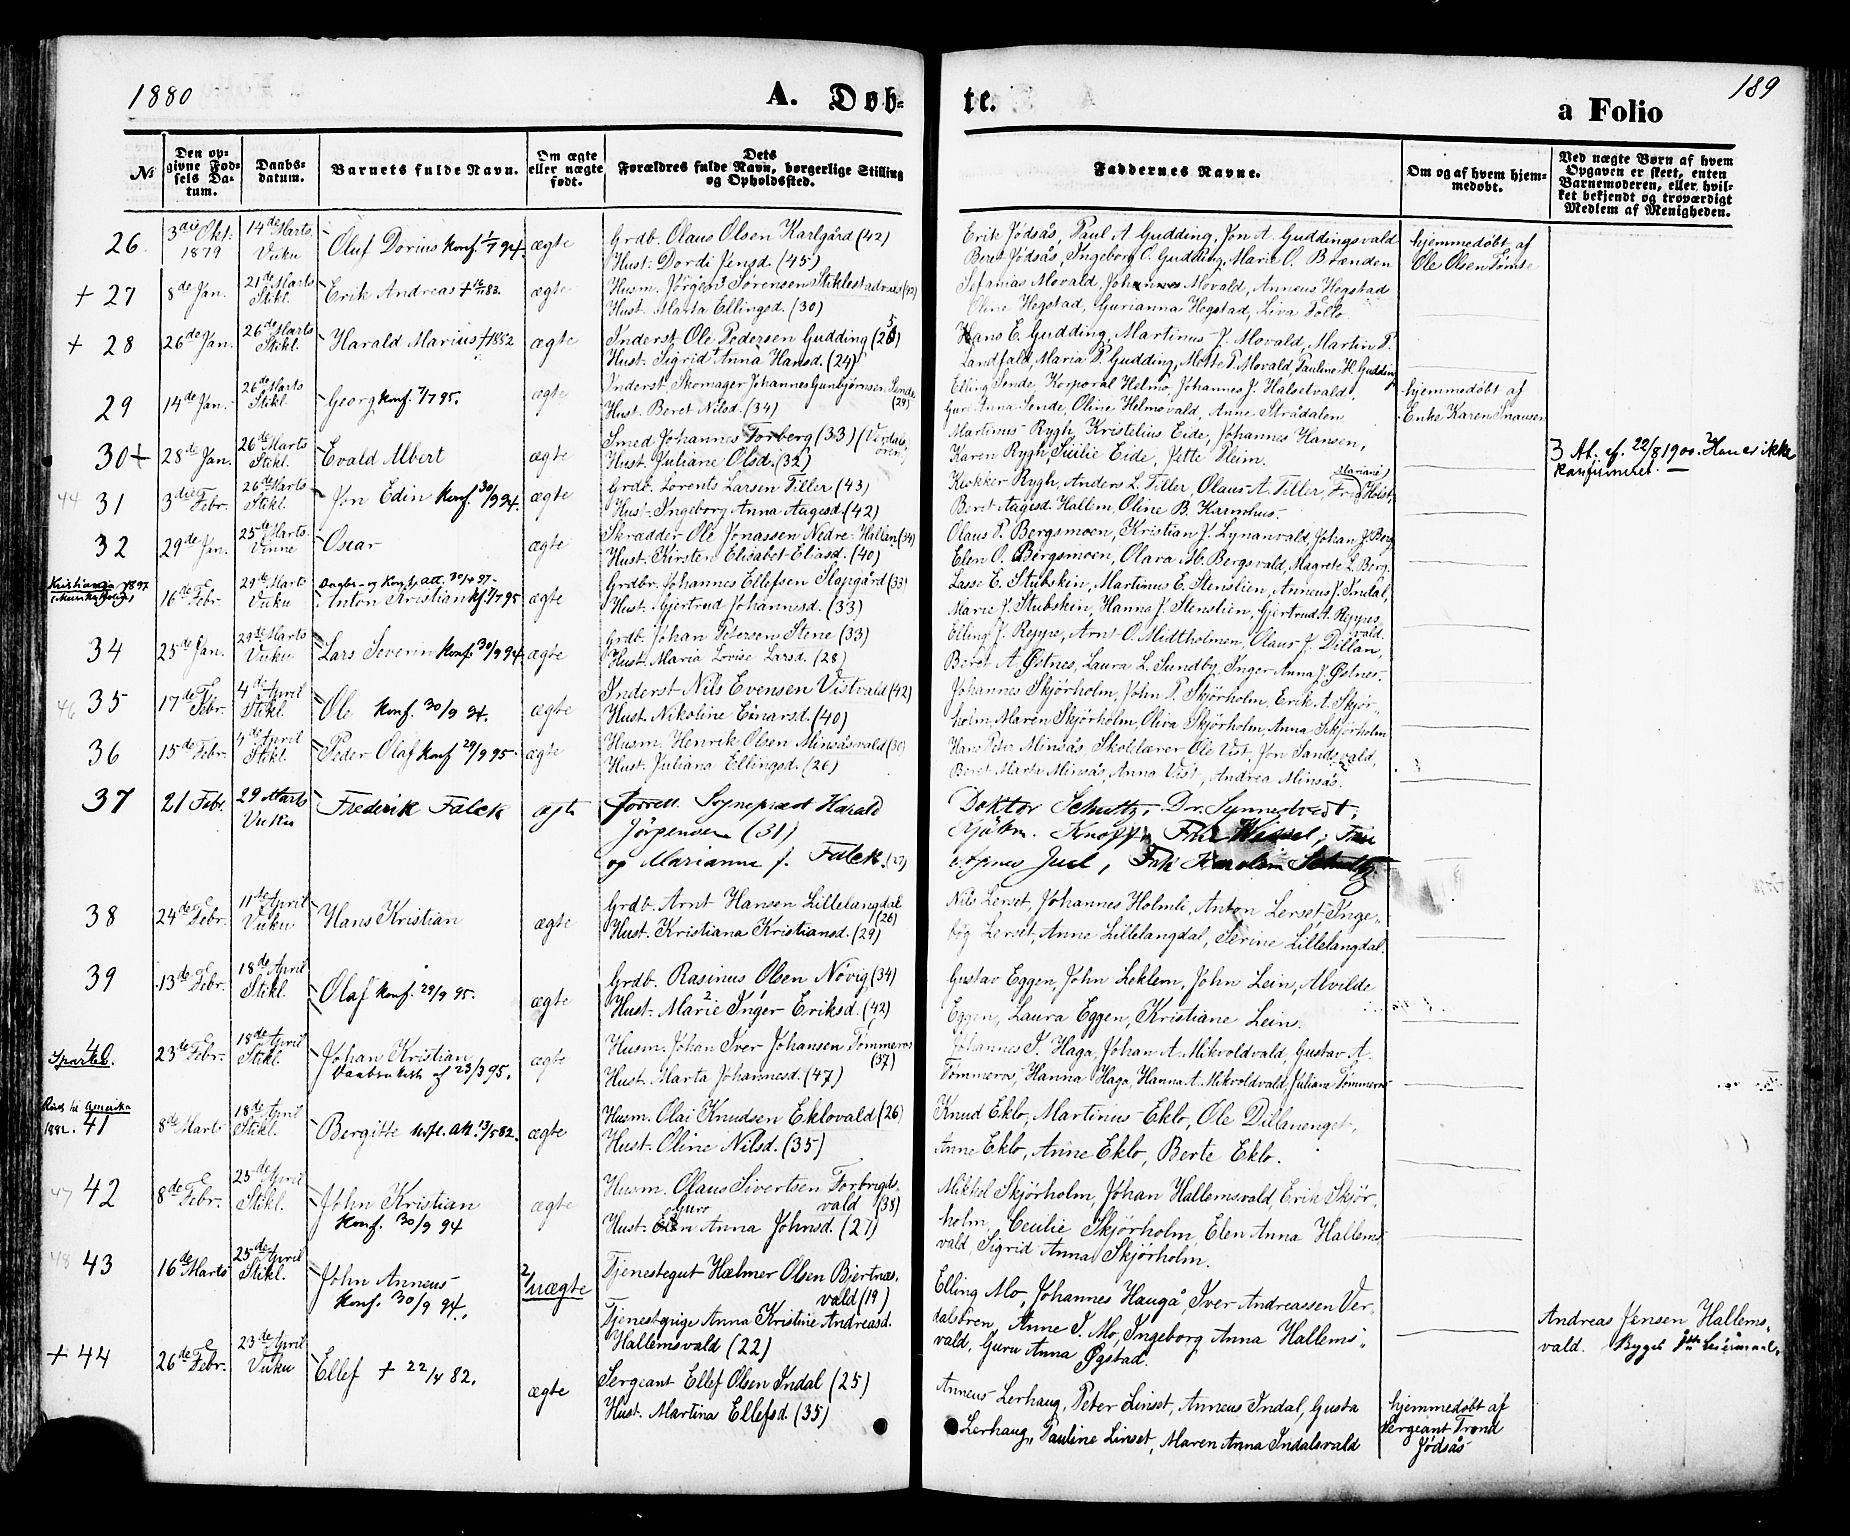 1880
A. Døb-
te.
189
a Folio
No
Den op-
givne Fød-
sels Da-
tum.
Daabs-
datum.
Barnets fulde Navn.
Om ægte
eller uægte
født.
Dets
Forældres fulde Navn, borgerlige Stilling
og Opholdssted.
Faddernes Navne.
Om og af hvem hjem-
medøbt.
Ved uægte Børn af hvem
Opgaven er skeet, enten
Barnemoderen, eller hvil-
ket bekjendt og troværdigt
Medlem af Menigheden.
26. 3die Okt. 1879 14de Marts Vuku Oluf Dorius Konf. 1/7 94. ægte
Grdb. Olaus Olsen Karlgård (42)
Hust. Dordi Jensd. (45)
Erik Jødsås, Paul A Gudding, Jon A. Guddingsvald
Beret Jødsås, Ingeborg O. Gudding, Marie O. Brænden
hjemmedøbt af
Ole Olsen Tømte
+ 27 8de Jan. 21de Marts Stikl. Erik Andreas + 83. ægte
Husm. Jörgen Sørensen Stiklestadvald
Hust. Marta Ellingsd. (30)
Sefanias Movald, Johannes Movald, Anneus Hegstad
Oline Hegstad, Gurianna Hegstad, Liva Follo
+ 28 26de Jan. 26de Marts Stikl. Harald Marius + 1882 ægte
Inderst Ole Pedersen Gudding
Hust. Sigrid Anna Hansd. (24)
Hans E. Gudding, Martinus J. Movald, Martin P.
Landfald, Maria P. Gudding, Mette P. Movald, Pauline H. Gudding
29 14de Jan. 26de Marts Stikl. Georg Konf. 7/7 95. ægte
Inderst Skomager Johannes Gunbjørnsen Sende (29)
Hust. Beret Nilsd. (34)
Elling Sende, Korporal Helmo Johannes J. Halsetvald,
Guri Anna Sende, Oline Helmovald, Anne Strådalen
hjemmedøbt af
Enke Karen Snausen
30 + 28de Jan. 26de Marts Stikl. Evald Albert ægte
Smed Johannes Forberg (33) (Verdalsøren)
Hust. Juliane Olsd. (32)
Martinus Rygh, Kristelius Eide, Johannes Hansen,
Karen Rygh, Sicilie Eide, Jette Pleim.
3 At. af. 22/8 1900. Han er ikke
konfirmeret.
44 31 3die Febr. 26de Marts Stikl. Jon Edin Konf. 30/9 94. ægte
Grdb. Lorents Larsen Tiller (43)
Hust. Ingeborg Anna Aagesd. (42)
Klokker Rygh, Anders L. Tiller, Olaus A. Tiller, Holst,
Beret Aagesd. Hallem, Oline B. Karmhus.
32 29de Jan. 25de Marts Vinne Oscar ægte
Skrædder Ole Jonassen Nedre Hallan (34)
Hust. Kirsten Elisabet Eliasd. (40)
Olaus P. Bergsmoen, Kristian J. Lynanvald, Johan J. Berg
Elen O. Bergsmoen, Olava M. Bergsvald, Magrete L. Berg.
Kristiania 1897
16de Febr 29de Marts Vuku Daabs- og Konf. att. 30/4 97. Anton Kristian kf. 7/7 95 ægte
Grdbr. Johannes Ellefsen Slapgård (33)
Hust. Gjertrud Johannesd. (33)
Lasse E. Stubskin, Martinus E. Stenslien, Anneus J. Indal,
Marie J. Stubskin, Hanna J. Stenslien, Gjertrud A. Reppes
vald.
34 25de Jan. 29de Marts Vuku Lars Severin Konf. 30/9 94. ægte
Grdb. Johan Petersen Stene (33)
Hust. Maria Lovise Larsd. (28)
Elling J. Reppe, Arnt O. Midtholmen, Olaus J. Dillan,
Beret A. Østnes, Laura L. Sundby, Inger Anna J. Østnes.
46 35 17de Febr. 4de April Stikl. Ole Konf. 30/9 94. ægte
Inderst Nils Evensen Vistvald (42)
Hust. Nikoline Einarsd. (40)
Johannes Skjørholm, John P. Skjørholm, Erik A. Skjør-
holm, Maren Skjørholm, Oliva Skjørholm, Anna Skjørholm
36 15de Febr. 4de April Stikl. Peder Olaf Konf 29/9 95. ægte
Husm. Henrik Olsen Minsåsvald (30)
Hust. Juliana Ellingsd. (26)
Hans Peter Minsås, Skolelærer Ole Vist, Jon Sandsvald,
Beret Marta Minsås, Anna Vist, Andrea Minsås.
37 21 Febr. 29 Marts Vuku Frederik Falck ægte
Sognepræst Harald
Jörgensen (31)
og Marianne f. Falck. (27)
Doktor Schultz, Dr. Synnestvedt,
Knopp, Wessel,
Agnes Juel, Schultz.
38 24de Febr. 11te April Vuku Hans Kristian ægte
Grdb. Arnt Hansen Lillelangdal (26)
Hust. Kristiana Kristiansd. (29)
Nils Lerset, Johannes Holmli, Anton Lerset, Inge-
bog Lerset, Anne Lillelangdal, Serine Lillelangdal.
39 13de Febr. 18de April Stikl. Olaf Konf. 29/9 95. ægte
Grdb. Rasinus Olsen Növig (34)
Hust. Marie Inger Eriksd. (42)
Gustav Eggen, John Leklem, John Lein, Alvilde
Eggen, Laura Eggen, Kristiane Lein.
40. 23de Febr. 18de April Stikl. Johan Kristian ægte
Daabsattest af 23/3 95.
Husm. Johan Iver Johansen Tømmerås (37)
Hust. Marta Johannesd. (47)
Johannes I. Haga, Johan A Mikvoldvald, Gustav A.
Tømmerås, Hanna Haga, Hanna A. Mikvoldvald, Juliana Tømmerås
Reist til Amerika
1882. 41 8de Marts 18de April Stikl. Bergitte att. 13/5 82. ægte
Husm. Olai Knudsen Eklovald (26)
Hust. Oline Nilsd. (35)
Knud Eklo, Martinus Eklo, Ole Dillanenget,
Anne Eklo, Anne Eklo, Berte Eklo.
47 42 8de Febr. 25de April Stikl. John Kristian ægte
Konf. 30/9 94
Husm. Olaus Sivertsen Forbregds-
vald (38)
Hust. Guro Anna Johnsd. (27)
Mikkel Skjørholm, Johan Hallemsvald, Erik Skjør,
holm, Cecilie Skjørholm, Elen Anna Hallems
vald, Sigrid Anna Skjørholm.
48 43 16de Marts 25de April Stikl. John Anneus 2/uægte
Konf. 30/9 94.
Tjenestegut Hælmer Olsen Bjertnæs,
vald (19)
Tjenestepige Anna Kristine Andreasd.
Hallemsvald (22)
Elling Mo, Johannes Haugå, Iver Andreassen Ver-
dalsören, Anne I. Mo, Ingeborg Anna Hallems-
vald, Guru Anna Øgstad.
Andreas Jensen Hallems-
vald. Begges Leiermaal.
+ 44 26de Febr. 23de April Vuku Ellef + 22/4 82. ægte
Sergeant Ellef Olsen Indal (25)
Hust. Martina Ellefsd. (35)
Anneus Lerhaug, Peter Linset, Anneus Indal, Gusta
Lerhaug, Pauline Linset, Maren Anna Indalsvald
hjemmedøbt af
Sergeant Trond
Jødsås